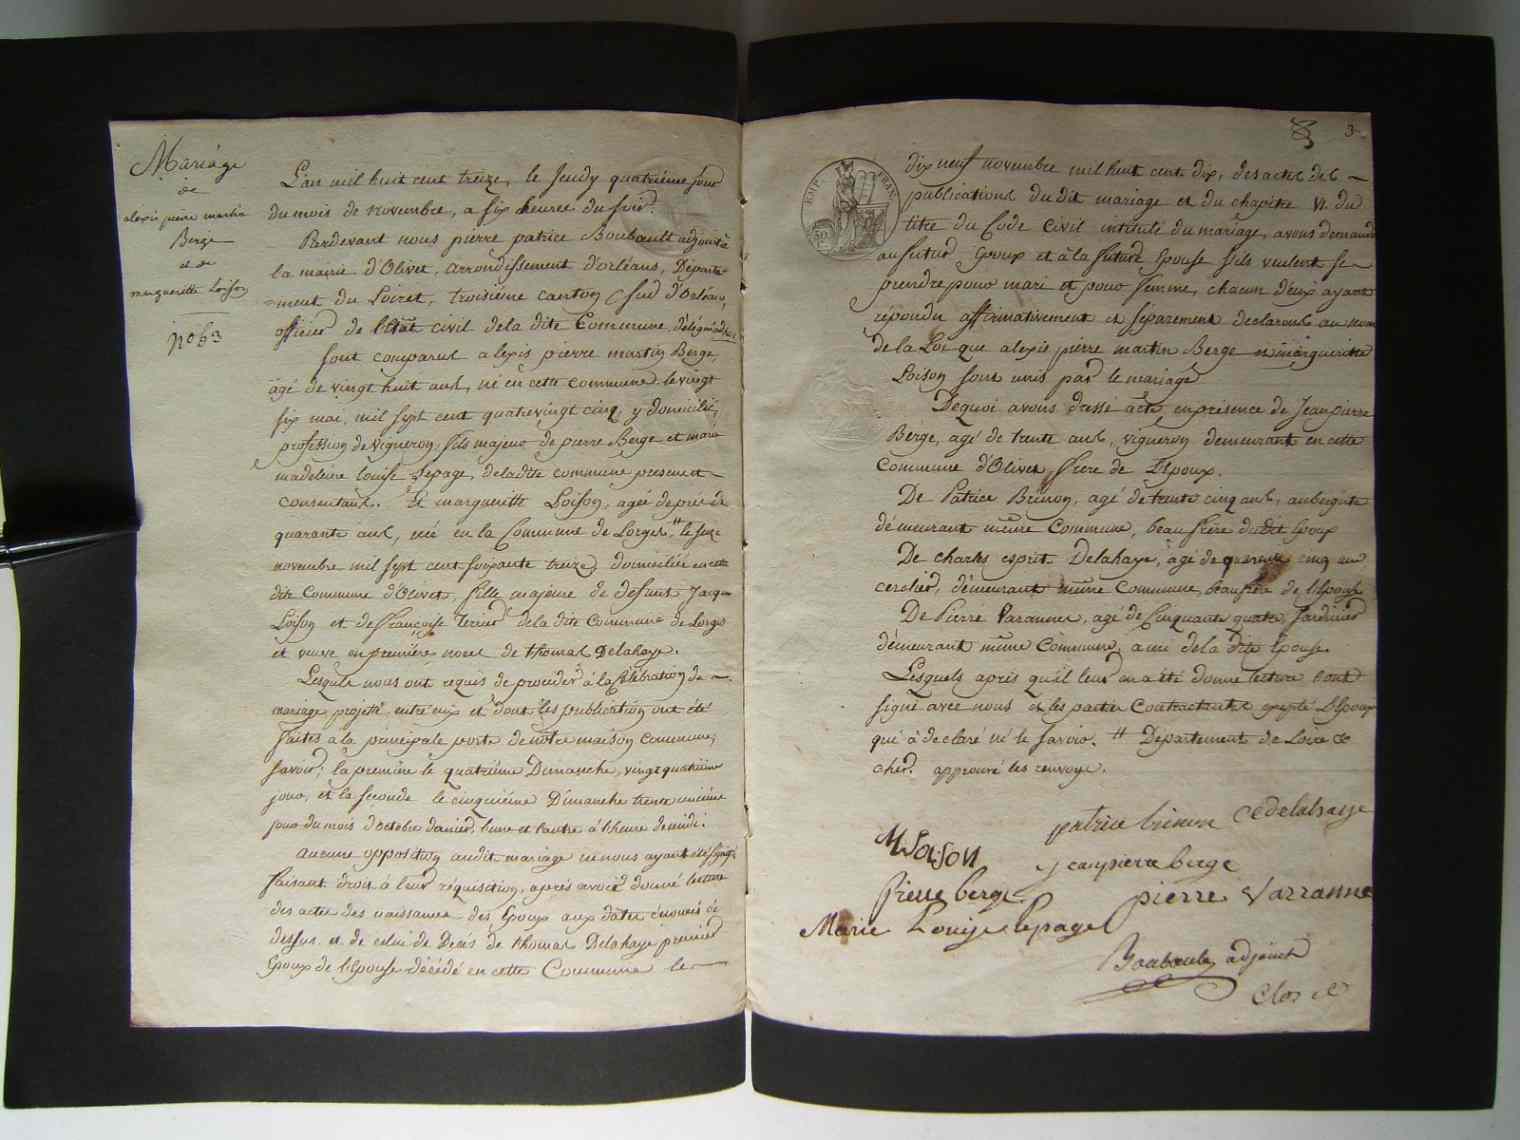 Mariage
de
alexis pierre martin
Berge
et de
margueritte Loison
no 63
L'an mil huit cent treize, le Jeudy quatrième jour
du mois de novembre, a six heures du soir.
Pardevant nous pierre patrice Boubault adjoint à
la mairie d'Olivet, arrondissement d'orléans, Départe-
-ment du Loiret, troisième canton sud d'Orléans,
officier de l'état civil de la dite Commune, délégué
Sont comparus alexis pierre martin Berge,
agé de vingt huit ans, né en cette commune le vingt
six mai, mil sept cent quatrevingt cinq, y domicilié,
profession de vigneron, fils majeur de pierre Berge et marie
madeleine louise Lepage, de la dite commune presens et
consentans. Et margueritte Loison, agée de près de
quarante ans, née en la Commune de Lorges # le seize
novembre mil sept cent soixante treize, domiciliée en cette
dite Commune d'Olivet, fille majeure de defunt Jacques
Loison et de françoise terrier de la dite Commune de Lorges
et veuve en première noces de thomas Delahaye.
Lesquels nous ont requis de procéder à la Célébration de
mariage projetté entre eux et dont les publication ont été
faites a la principale porte de notre maison commune,
savoir; la première le quatrième Dimanche, vingt quatrième
jour, et la seconde le cinquième Dimanche trente unième
jour du mois d'octobre dernier, l'une et l'autre à l'heure de midi.
aucune opposition audit mariage ne nous ayant été signifié
faisant droit à leur réquisition, après avoir donné lecture
des actes des naissances des Epoux aux dates énoncés ci
dessus et de celui de Decés de thomas Delahaye premier
Epoux de l'Epouse décédé en cette Commune le
3
TIMP. FRANC.
50
dix neuf novembre mil huit cent dix, des actes des
publications du dit mariage et du chapitre VI du
titre du Code Civil intitulé du mariage, avons demandé
au futur Epoux et à la future Epouse s'ils veulent se
prendre pour mari et pour femme, chacun d'eux ayant
répondu affirmativement et séparement declarons au nom
de la Loi que alexis pierre martin Berge et marguerite
Loison sont unis par le mariage
De quoi avons dressé acte, en présence de Jean pierre
Berge, agé de trente ans, vigneron demeurant en cette
Commune d'Olivet, frere de l'Epoux.
De Patrice Brinon, agé de trente cinq ans, aubergiste
démeurant même Commune, beau frère dudit Epoux
De charles esprit Delahaye, agé de quarante cinq ans
cerclier, démeurant même Commune, beaufrère de l'Epouse
De Pierre Varannes, agé de Cinquante quatre, Jardinier
démeurant même Commune, ami de la dite Epouse.
Lesquels après qu'il leur en a été donné lecture l'ont
signé avec nous et les parties Contractantes excepté l'Epoux
qui à declaré ne le savoir. # Departement de Loir et
cher. approuvé les renvoye.
patrice brinon CE delahaye
M Loison
jean pierre berge
pierre berge pierre varranne
Marie Louise lepage
Boubault adjoint